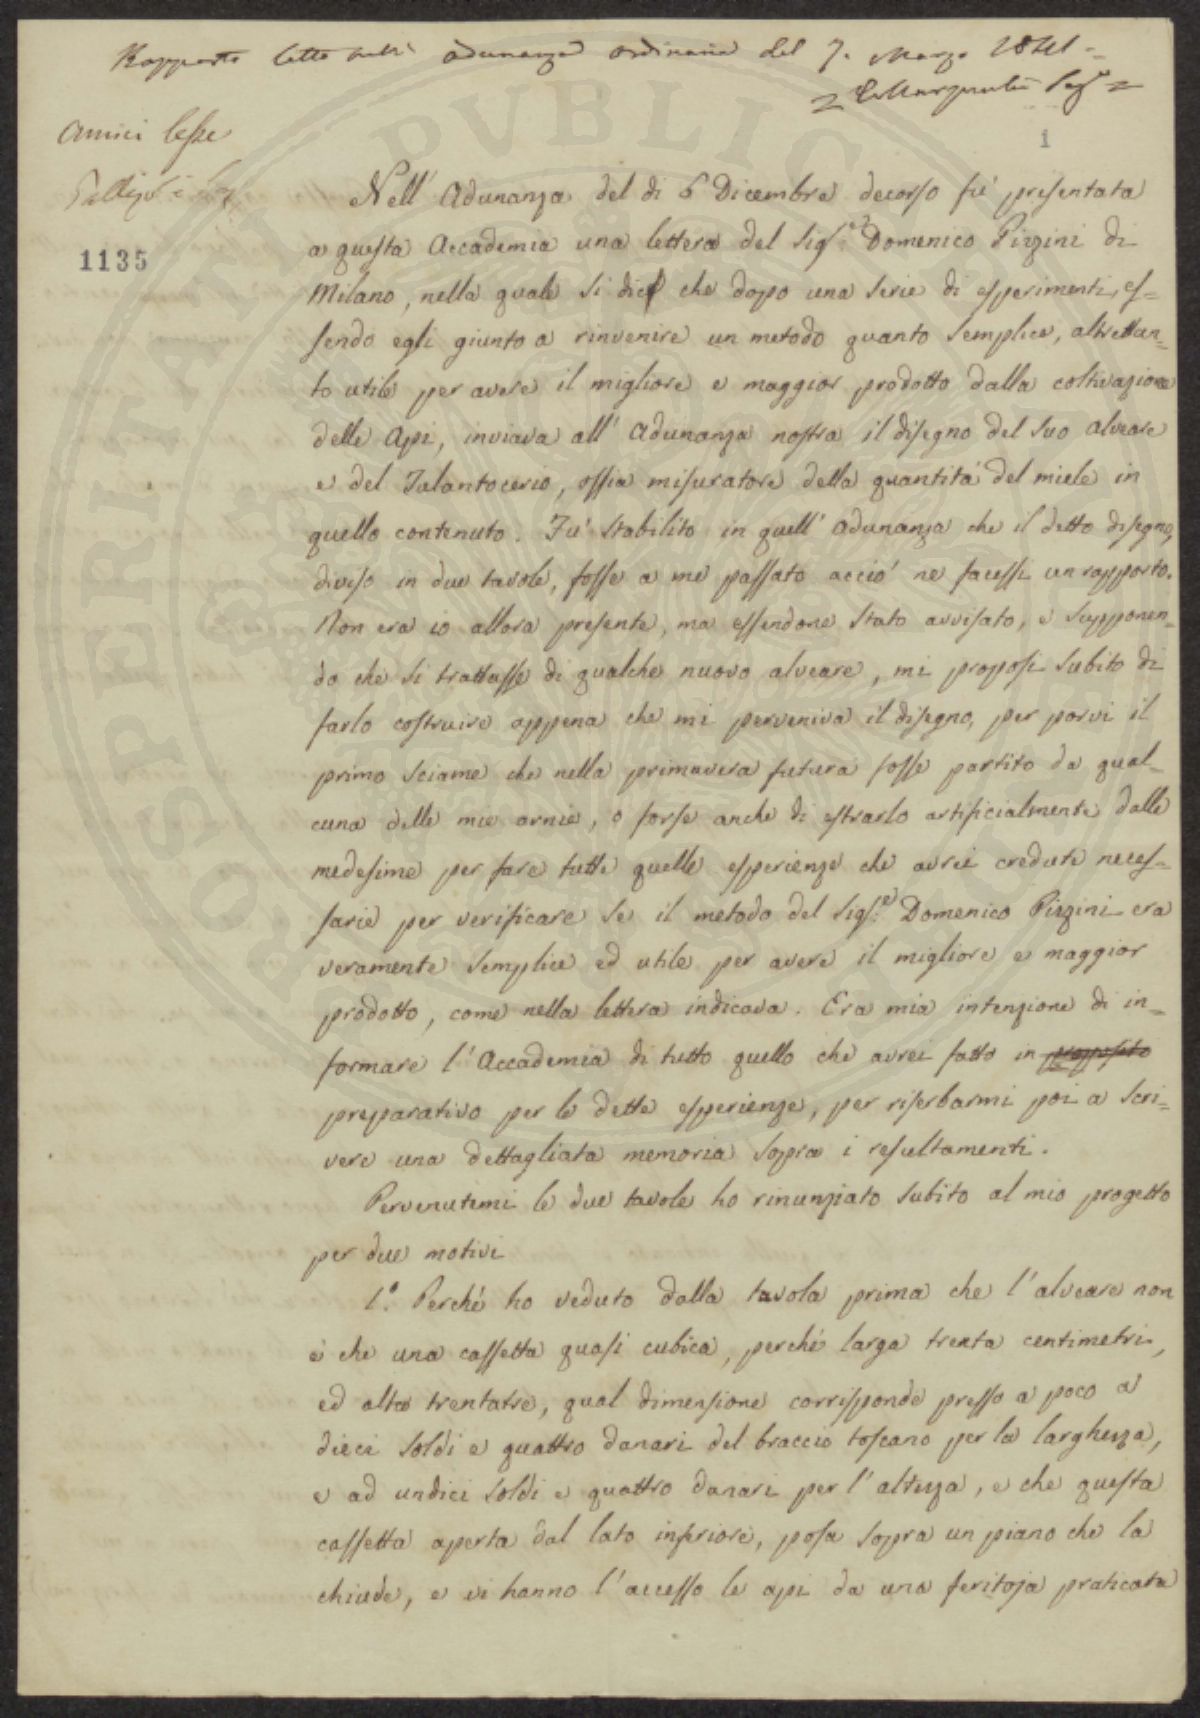 Rapporto letto nell' adunanza ordinaria del 7. Marzo 1841 =
Amici lesse
1
Nell' Adunanza del dì 6 Dicembre decorso fù presentata
a questa Accademia una lettera del Sig.re Domenico Pizzini di
1135
Milano, nella quale si dice che dopo una serie di esperimenti, es=
sendo egli giunto a rinvenire un metodo quanto semplice, altrettan=
to utile per avere il migliore e maggior prodotto dalla coltivazione
delle Api, inviava all' Adunanza nostra il disegno del suo alveare
e del Talantocerio, ossia misuratore della quantità del miele in
quello contenuto. Fù stabilito in quell' adunanza che il detto disegno,
diviso in due tavole, fosse a me passato acciò ne facessi un rapporto.
Non era io allora presente, ma essendone stato avvisato, e supponen=
do che si trattasse di qualche nuovo alveare, mi proposi subito di
farlo costruire appena che mi perveniva il disegno, per porvi il
primo sciame che nella primavera futura fosse partito da qual=
cuna delle mie arnie, o forse anche di estrarlo artificialmente dalle
medesime per fare tutte quelle esperienze che avrei credute neces=
sarie per verificare se il metodo del Sig.re Domenico Pizzini era
veramente semplice ed utile per avere il migliore e maggior
prodotto, come nella lettera indicava. Era mia intenzione di in=
formare l' Accademia di tutto quello che avrei fatto in proposito
preparativo per le dette esperienze, per riserbarmi poi a scri=
vere una dettagliata memoria sopra i resultamenti.
Pervenutemi le due tavole ho rinunziato subito al mio progetto
per due motivi
1.° Perché ho veduto dalla tavola prima che l' alveare non
è che una cassetta quasi cubica, perché larga trenta centimetri,
ed alta trentatre, qual dimensione corrisponde presso a poco a
dieci soldi e quattro danari del braccio toscano per la larghezza,
e ad undici soldi e quattro danari per l' altezza, e che questa
cassetta aperta dal lato inferiore, posa sopra un piano che la
chiude, e vi hanno l' accesso le api da una feritoja praticata